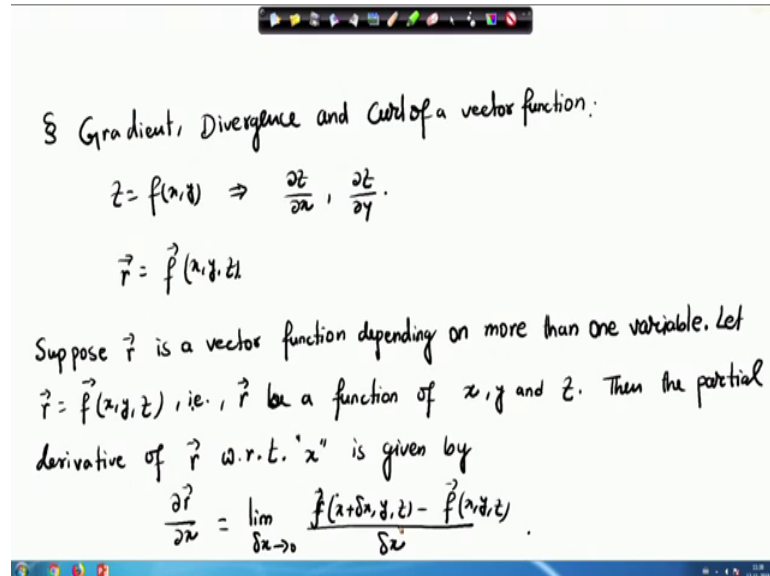 § Gradient, Divergence and Curl of a vector function:
z = f(x,y) ⇒ ∂z/∂x , ∂z/∂y .
r⃗ = f⃗ (x,y,z).
Suppose r⃗ is a vector function depending on more than one variable. Let
r⃗ = f⃗(x,y,z) , i.e., r⃗ be a function of x, y and z. Then the partial
derivative of r⃗ w.r.t. "x" is given by
∂r⃗/∂x = lim δx→0 f⃗(x+δx,y,z) - f⃗(x,y,z) / δx .